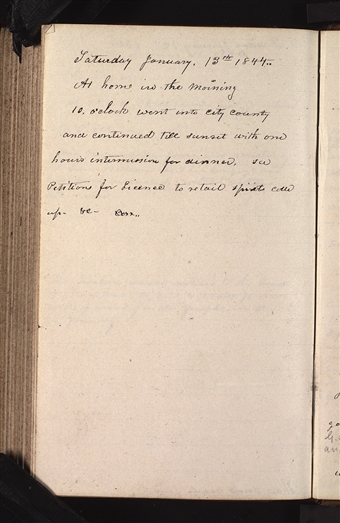 Saturday January. 13th 1844..
At home in the moining
10, oclock went into city county
and continued till sunset with one
hours intermission for dinner, see
Petitions for Licence to retail spirits
up- &c-